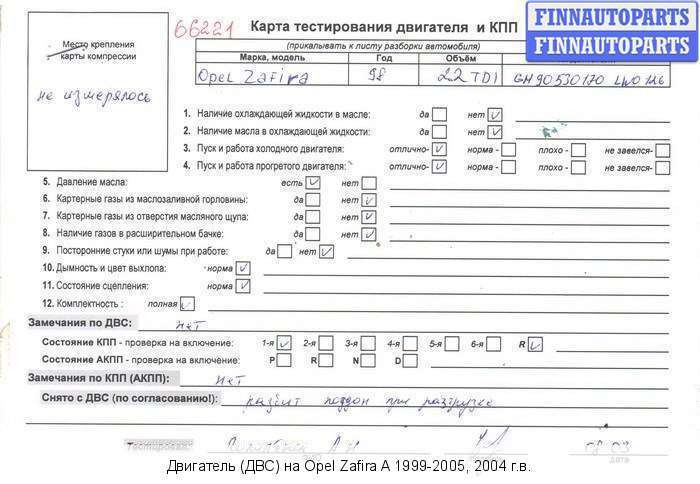 66221
Карта тестирования двигателя и КПП
(прикалывать к листу разборки автомобиля)
FINNAUTOPARTS
FINNAUTOPARTS
Место крепления
карты компрессии
не измерялось
Марка, модель Год Объём
Opel Zafira 2.2 TDI GM90530170
1. Наличие охлаждающей жидкости в масле: да нет ✓
2. Наличие масла в охлаждающей жидкости: да нет ✓
3. Пуск и работа холодного двигателя: отлично- ✓ норма - плохо - не завелся-
4. Пуск и работа прогретого двигателя: отлично- ✓ норма - плохо - не завелся-
5. Давление масла: есть ✓ нет
6. Картерные газы из маслозаливной горловины: да нет ✓
7. Картерные газы из отверстия масляного щупа: да нет ✓
8. Наличие газов в расширительном бачке: да нет ✓
9. Посторонние стуки или шумы при работе: да нет ✓
10. Дымность и цвет выхлопа: норма ✓
11. Состояние сцепления: норма ✓
12. Комплектность : полная ✓
Замечания по ДВС: нет
Состояние КПП - проверка на включение: 1-я ✓ 2-я 3-я 4-я 5-я 6-я R ✓
Состояние АКПП - проверка на включение: P R N D
Замечания по КПП (АКПП): нет
Снято с ДВС (по согласованию!): разбит поддон при разгрузке
Тестировал: дата
Двигатель (ДВС) на Opel Zafira A 1999-2005, 2004 г.в.